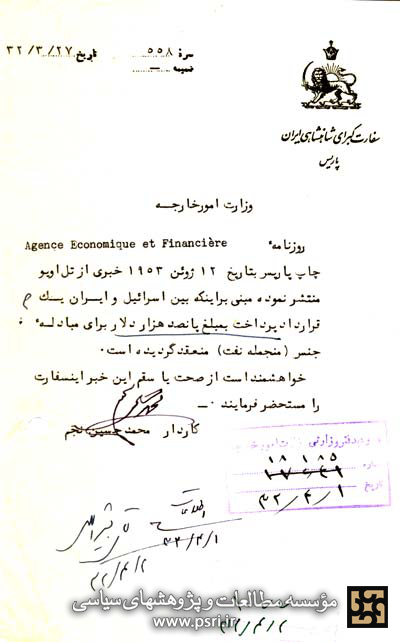 نمرهٔ ۵۵۸ تاریخ ۳۲/۳/۲۷
ضمیمه —
سفارت کبرای شاهنشاهی ایران
پاریس
وزارت امور خارجــه
روزنامهٔ Agence Economique et Financière
چاپ پاریس بتاریخ ۱۲ ژوئن ۱۹۵۳ خبری از تل اویو
منتشر نموده مبنی براینکه بین اسرائیل و ایران یــك
قرارداد پرداخت بمبلغ پانصد هزار دلار برای مبادلـهٔ
جنس (منجمله نفت) منعقد گردیده است.
خواهشمند است از صحت یا سقم این خبر اینسفارت
را مستحضر فرمایند.
کاردار محمد حسین نجم
ورود بدفتر وزارتی
۱۸۱۸۵
تاریخ ۳۲/۴/۱
اطلاعات
۳۲/۴/۱
۳۲/۴/۲
مؤسسه مطالعات و پژوهشهای سیاسی
www.psri.ir